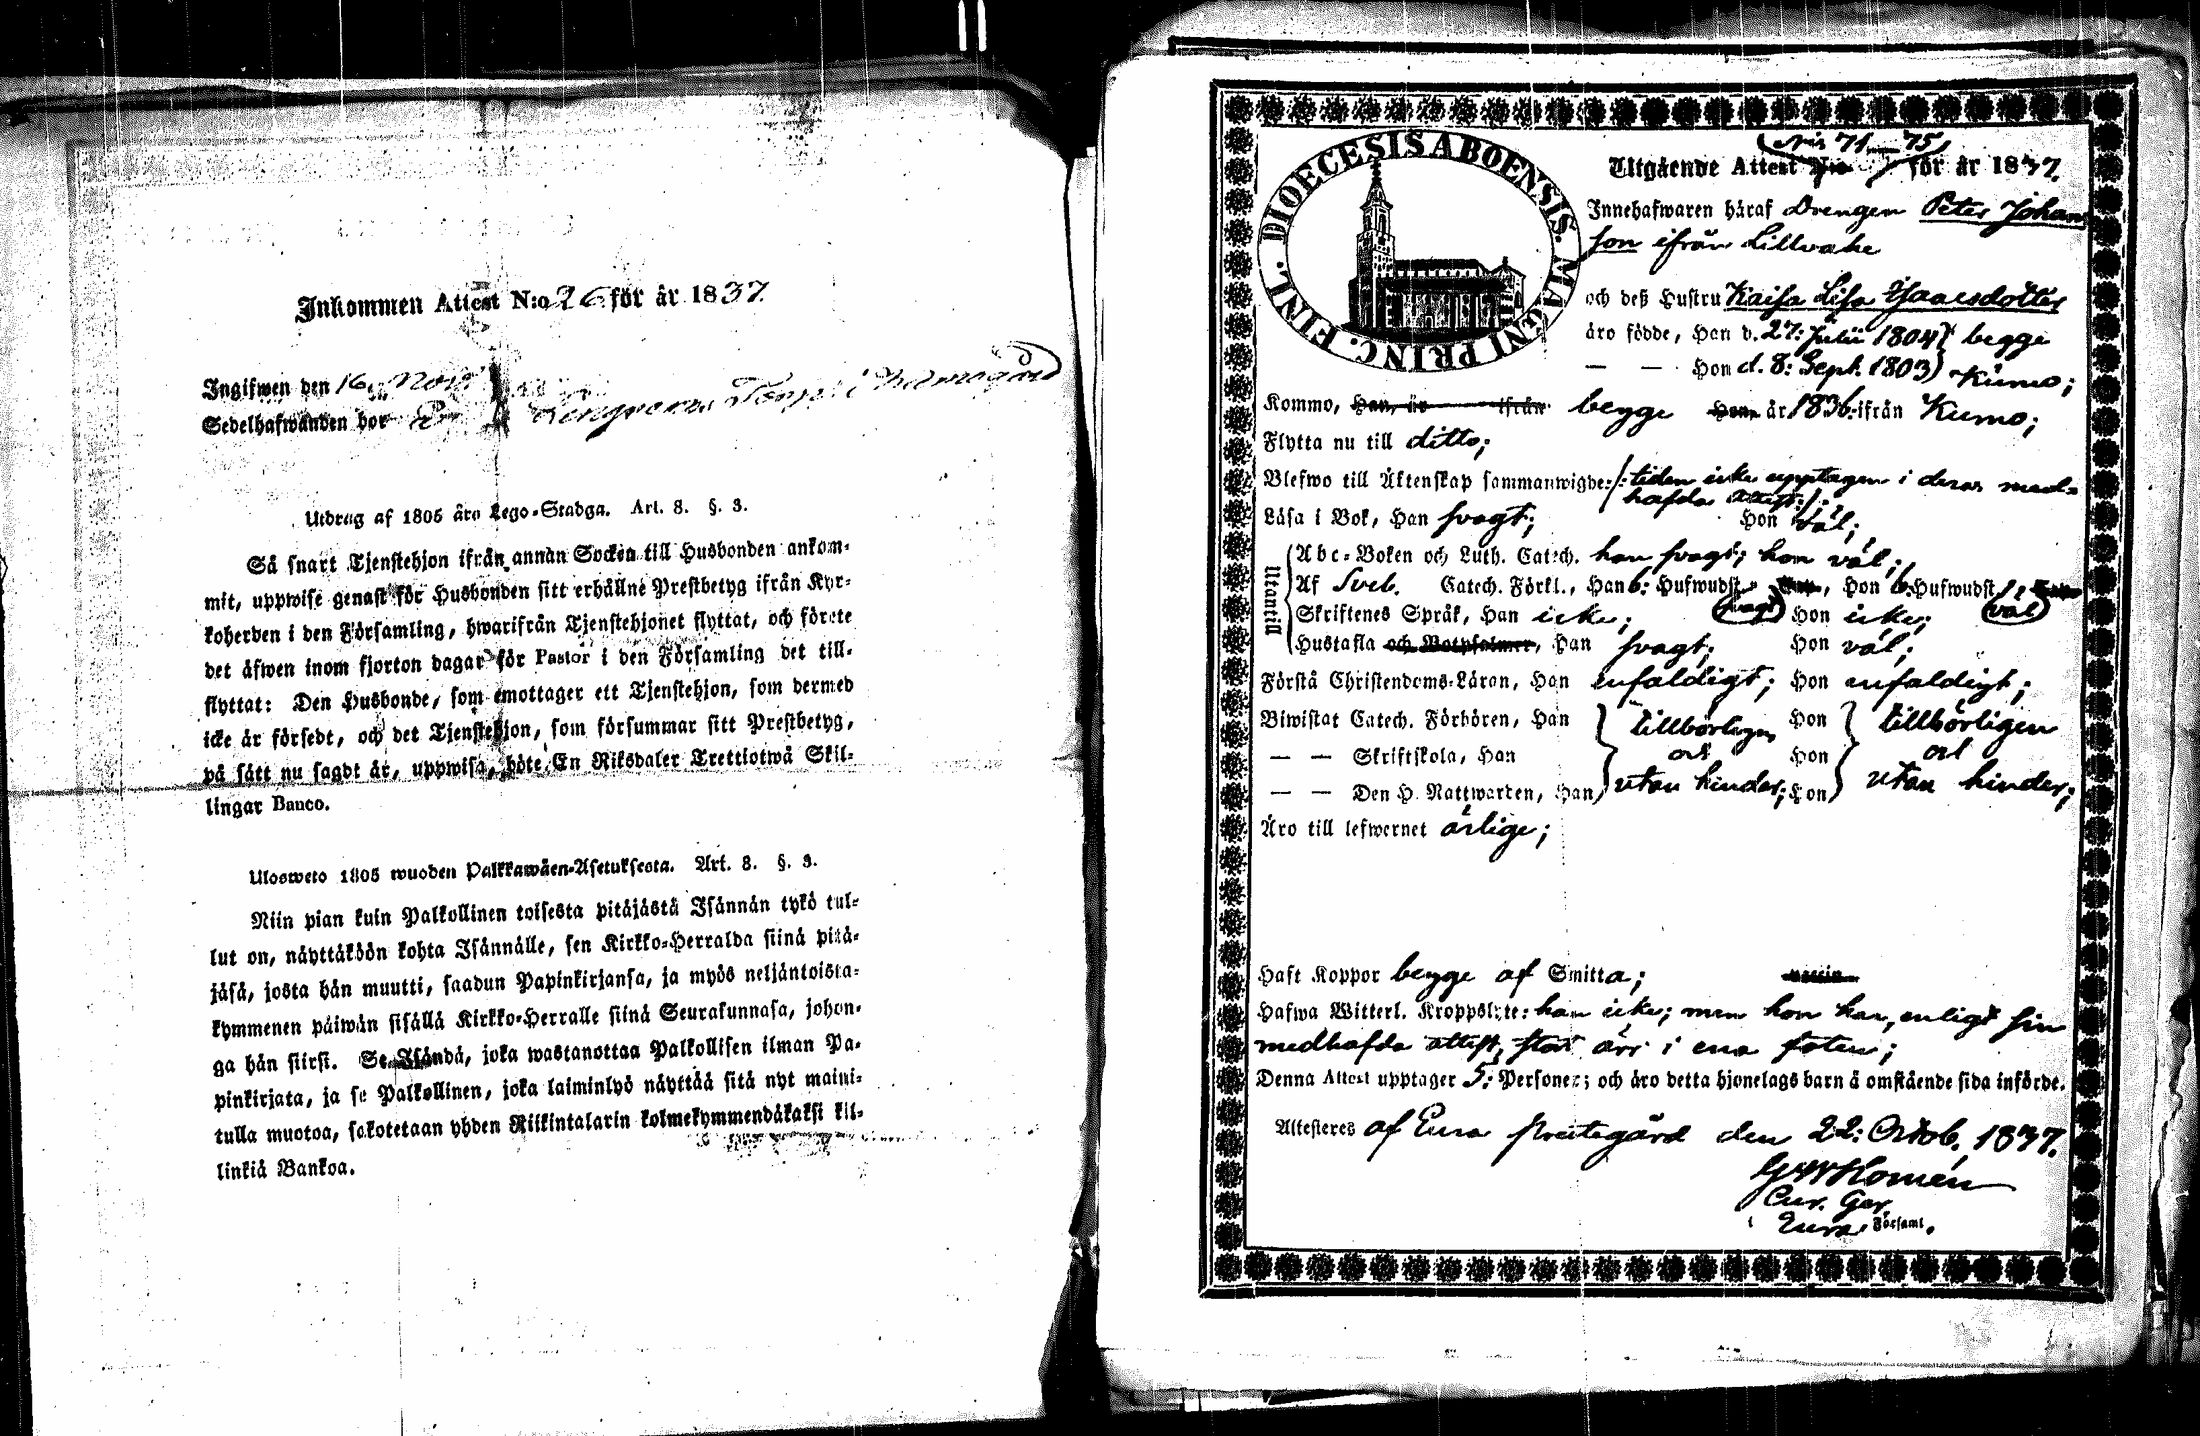 Inkommen Attest N:o 26 för år 1837.
Ingifwen den 16. Nov:
Sedelhafwanden bor
Utdrag af 1805 års Lego-Stadga. Art. 8. §. 3.
Så snart Tjenstehjon ifrån annan Socken till Husbonden ankom-
mit, uppwise genast för Husbonden sitt erhållne Prestbetyg ifrån Kyr-
koherden i den Församling, hwarifrån Tjenstehjonet flyttat, och förete
det äfwen inom fjorton dagar för Pastor i den Församling det till-
flyttat: Den Husbonde, som emottager ett Tjenstehjon, som dermed
icke är försedt, och det Tjenstehjon, som försummar sitt Prestbetyg,
på sätt nu sagdt är, uppwisa, böte En Riksdaler Trettiotwå Skil-
lingar Banco.
Ulosweto 1805 wuoden Palkkawäen-Asetuksesta. Art. 8. §. 3.
Niin pian kuin Palkollinen toisesta pitäjästä Isännän tykö tul-
lut on, näyttäköön kohta Isännälle, sen Kirkko-Herralda siinä pitä-
jäsä, josta hän muutti, saadun Papinkirjansa, ja myös neljäntoista-
kymmenen päiwän sisällä Kirkko-Herralle siinä Seurakunnasa, johon-
ga hän siirsi. Se Isändä, joka wastanottaa Palkollisen ilman Pa-
pinkirjata, ja se Palkollinen, joka laiminlyö näyttää sitä nyt maini-
tulla muotoa, sakotetaan yhden Riikintalarin kolmekymmendäkaksi kil-
linkiä Bankoa.
DIOECESIS ABOENSIS. MAGNI PRINC. FINL.
N:is 71—75,
Utgående Attest N:o för år 1837.
Innehafwaren häraf Drengen Peter Johan
son ifrån Lillwahe
och deß Hustru Kaisa Lisa Isaacsdotter
äro födde, Han d. 27: Julii 1804 begge
— — Hon d. 8: Sept. 1803 Kumo;
Kommo, Han, är ifrån begge Hon, år 1836: ifrån Kumo;
Flytta nu till ditto;
Blefwo till Äktenskap sammanwigde: /: tiden icke upptagen i deras med-
hafda attest: /;
Läsa i Bok, Han svagt; Hon väl;
Utantill
Abc-Boken och Luth. Catech. han svagt; hon väl;
Af Sveb. Catech. Förkl., Han 6: Hufwudst., Hon 6: Hufwudst.
Skriftenes Språk, Han icke; (svagt) Hon icke; (väl)
Hustafla och Botpsalmer, Han svagt; Hon väl;
Förstå Christendoms-Läran, Han enfaldigt; Hon enfaldigt;
Biwistat Catech. Förhören, Han tillbörligen Hon tillbörligen
— — Skriftskola, Han och Hon och
— — Den H. Nattwarden, Han utan hinder; Hon utan hinder;
Äro till lefwernet ärlige;
Haft Koppor begge af Smitta;
Hafwa Witterl. Kroppslyte: han icke; men hon har, enligt sin
medhafda attest, stort ärr i ena foten;
Denna Attest upptager 5: Personer; och äro detta hjonelags barn å omstående sida införde.
Attesteres af Eura prestegård den 22: Octob. 1837.
G W Homén
Cur. Ger.
i Eura Församl.